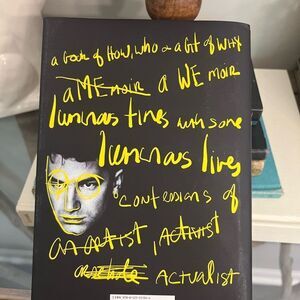 a book of HOW, WHO & a bit of WHY
a MEmoir a WE moir
luminous times with some
luminous lives
confessions of
an artist, activist
actualist